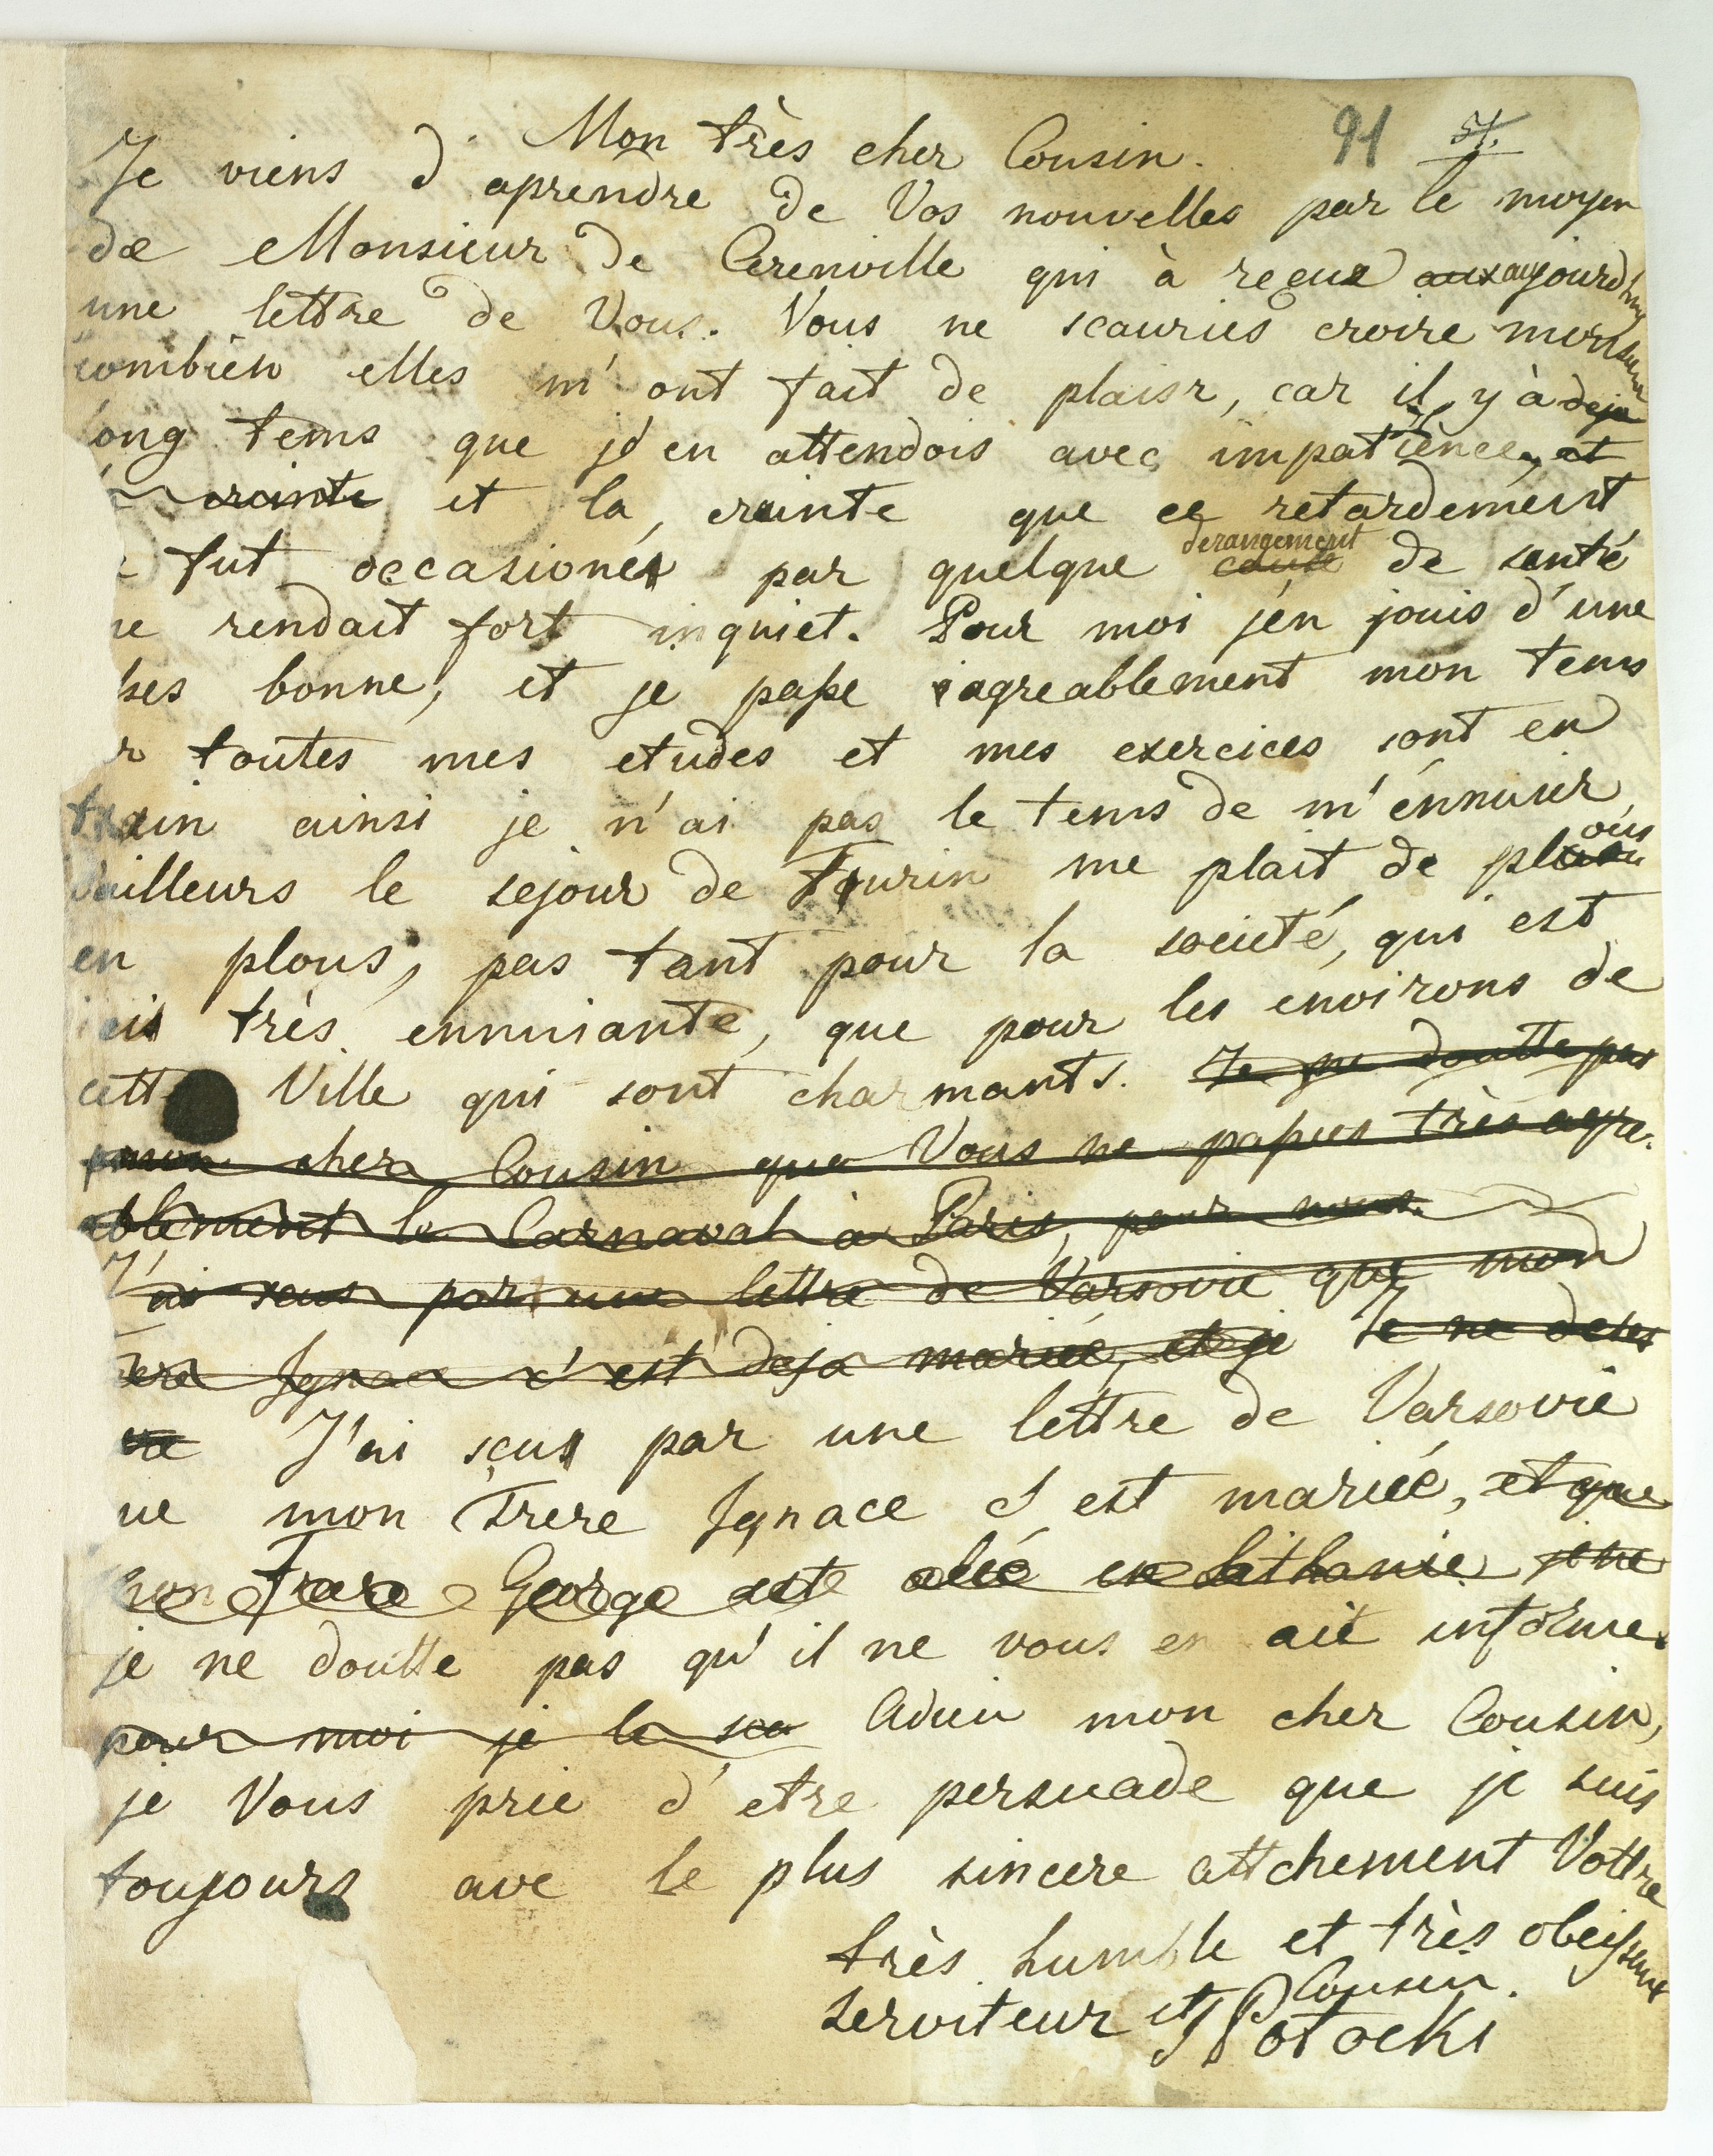 Mon très cher Cousin. 91 51.
Je viens d'aprendre de Vos nouvelles par le moyen
de Monsieur de Cerenville qui à reçue aux aujourdhuy
une lettre de Vous. Vous ne scauriés croire
combien elles m'ont fait de plaisr, car il y à deja
long tems que j'en attendois avec impatience, et
crainte et la crainte que ce retardement
fut occasioné par quelque derangement cause de santé
me rendait fort inquiet. Pour moi j'en jouis d'une
bonne, et je passe agreablement mon tems
r toutes mes etudes et mes exercices sont en
train ainsi je n'ai pas le tems de m'énnuier,
dailleurs le sejour de Tourin me plait de plous
en plous, pas tant pour la societé, qui est
ici très ennuiante, que pour les environs de
cette Ville qui sont charmants. Je ne doutte pas
mon cher Cousin que Vous ne passies très agre-
ablement le Carnaval à Paris, pour nous.
J'ai seus par une lettre de Varsovie que mon
frere Ignace c'est deja mariée, et je Je ne
J'ai sçus par une lettre de Varsovie
que mon Frere Ignace c'est mariéé, et que
mon Frere George este aleé en Lithanie je ne
je ne doutte pas qu'il ne vous en aie informes
pour moi je le sca Adieu mon cher Cousin,
je Vous prie d'etre persuade que je suis
toujours ave le plus sincere attchement Vottre
très humble et très obeissent
serviteur et Cousin.
J Potocki